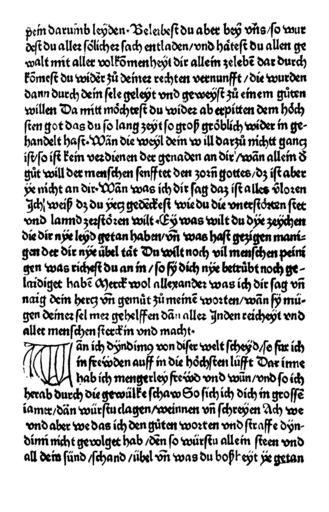 pein darumb leyden· Beleibest du aber bey vn̄s/so wur
dest du aller sölicher sach entladen/vnd hätest du allen ge
walt mit aller volkōmenheyt dir allein zelebē dar durch
kömest du wider zů deiner rechten vernunfft/die wurden
dann durch dein sele geleyt vnd geweyst zů einem gůten
willen Da mitt möchtest du wider ab erpitten dem höch
sten got das du so lang zeyt so groß gröblich wider in ge-
handelt hast· Wān die weyl dein will darzů nicht gantz
ist/so ist kein verdienen der genaden an dir/wān allein d
gůt will der menschen senfftet den zorn gottes/dz ist aber
ye nicht an dir· Wān was ich dir sag daz ist alles v̓loren
Ich weiß dz du yetz gedeckest wie du die vnterstōtten stet
vnd lannd zerstören wilt· Ey was wilt du dye zeychen
die dir nye leyd getan haben/vn̄ was hast gezigen mani-
gen der dir nye übel tät Du wilt noch vil menschen peini
gen was richest du an in/so sy dich nye betrübt noch ge-
laidiget habē Merck wol allexander was ich dir sag vn̄
naig dein hercz vn̄ gemüt zů meinē worten/wān sy mü-
gen deiner sel mer gehelffen dān aller Inden reicheyt vnd
aller menschen sterck in vnd macht·
Wān ich dyndimo von diser welt scheyd/so far ich
in frewden auff in die höchsten lüfft Dar inne
hab ich mengerley frewd vnd wün/vnd so ich
herab durch die gewülke schaw So sich ich dich in grossē
iamer/dān würstu clagen/weinnen vn̄ schreyen Ach we
vnd aber we das ich den gůten worten vnd straffe dyn-
dimi nicht geuolget hab/den so würstu allein steen vnd
all dein sünd/schand/übel vn̄ was du boßheyt ye getan